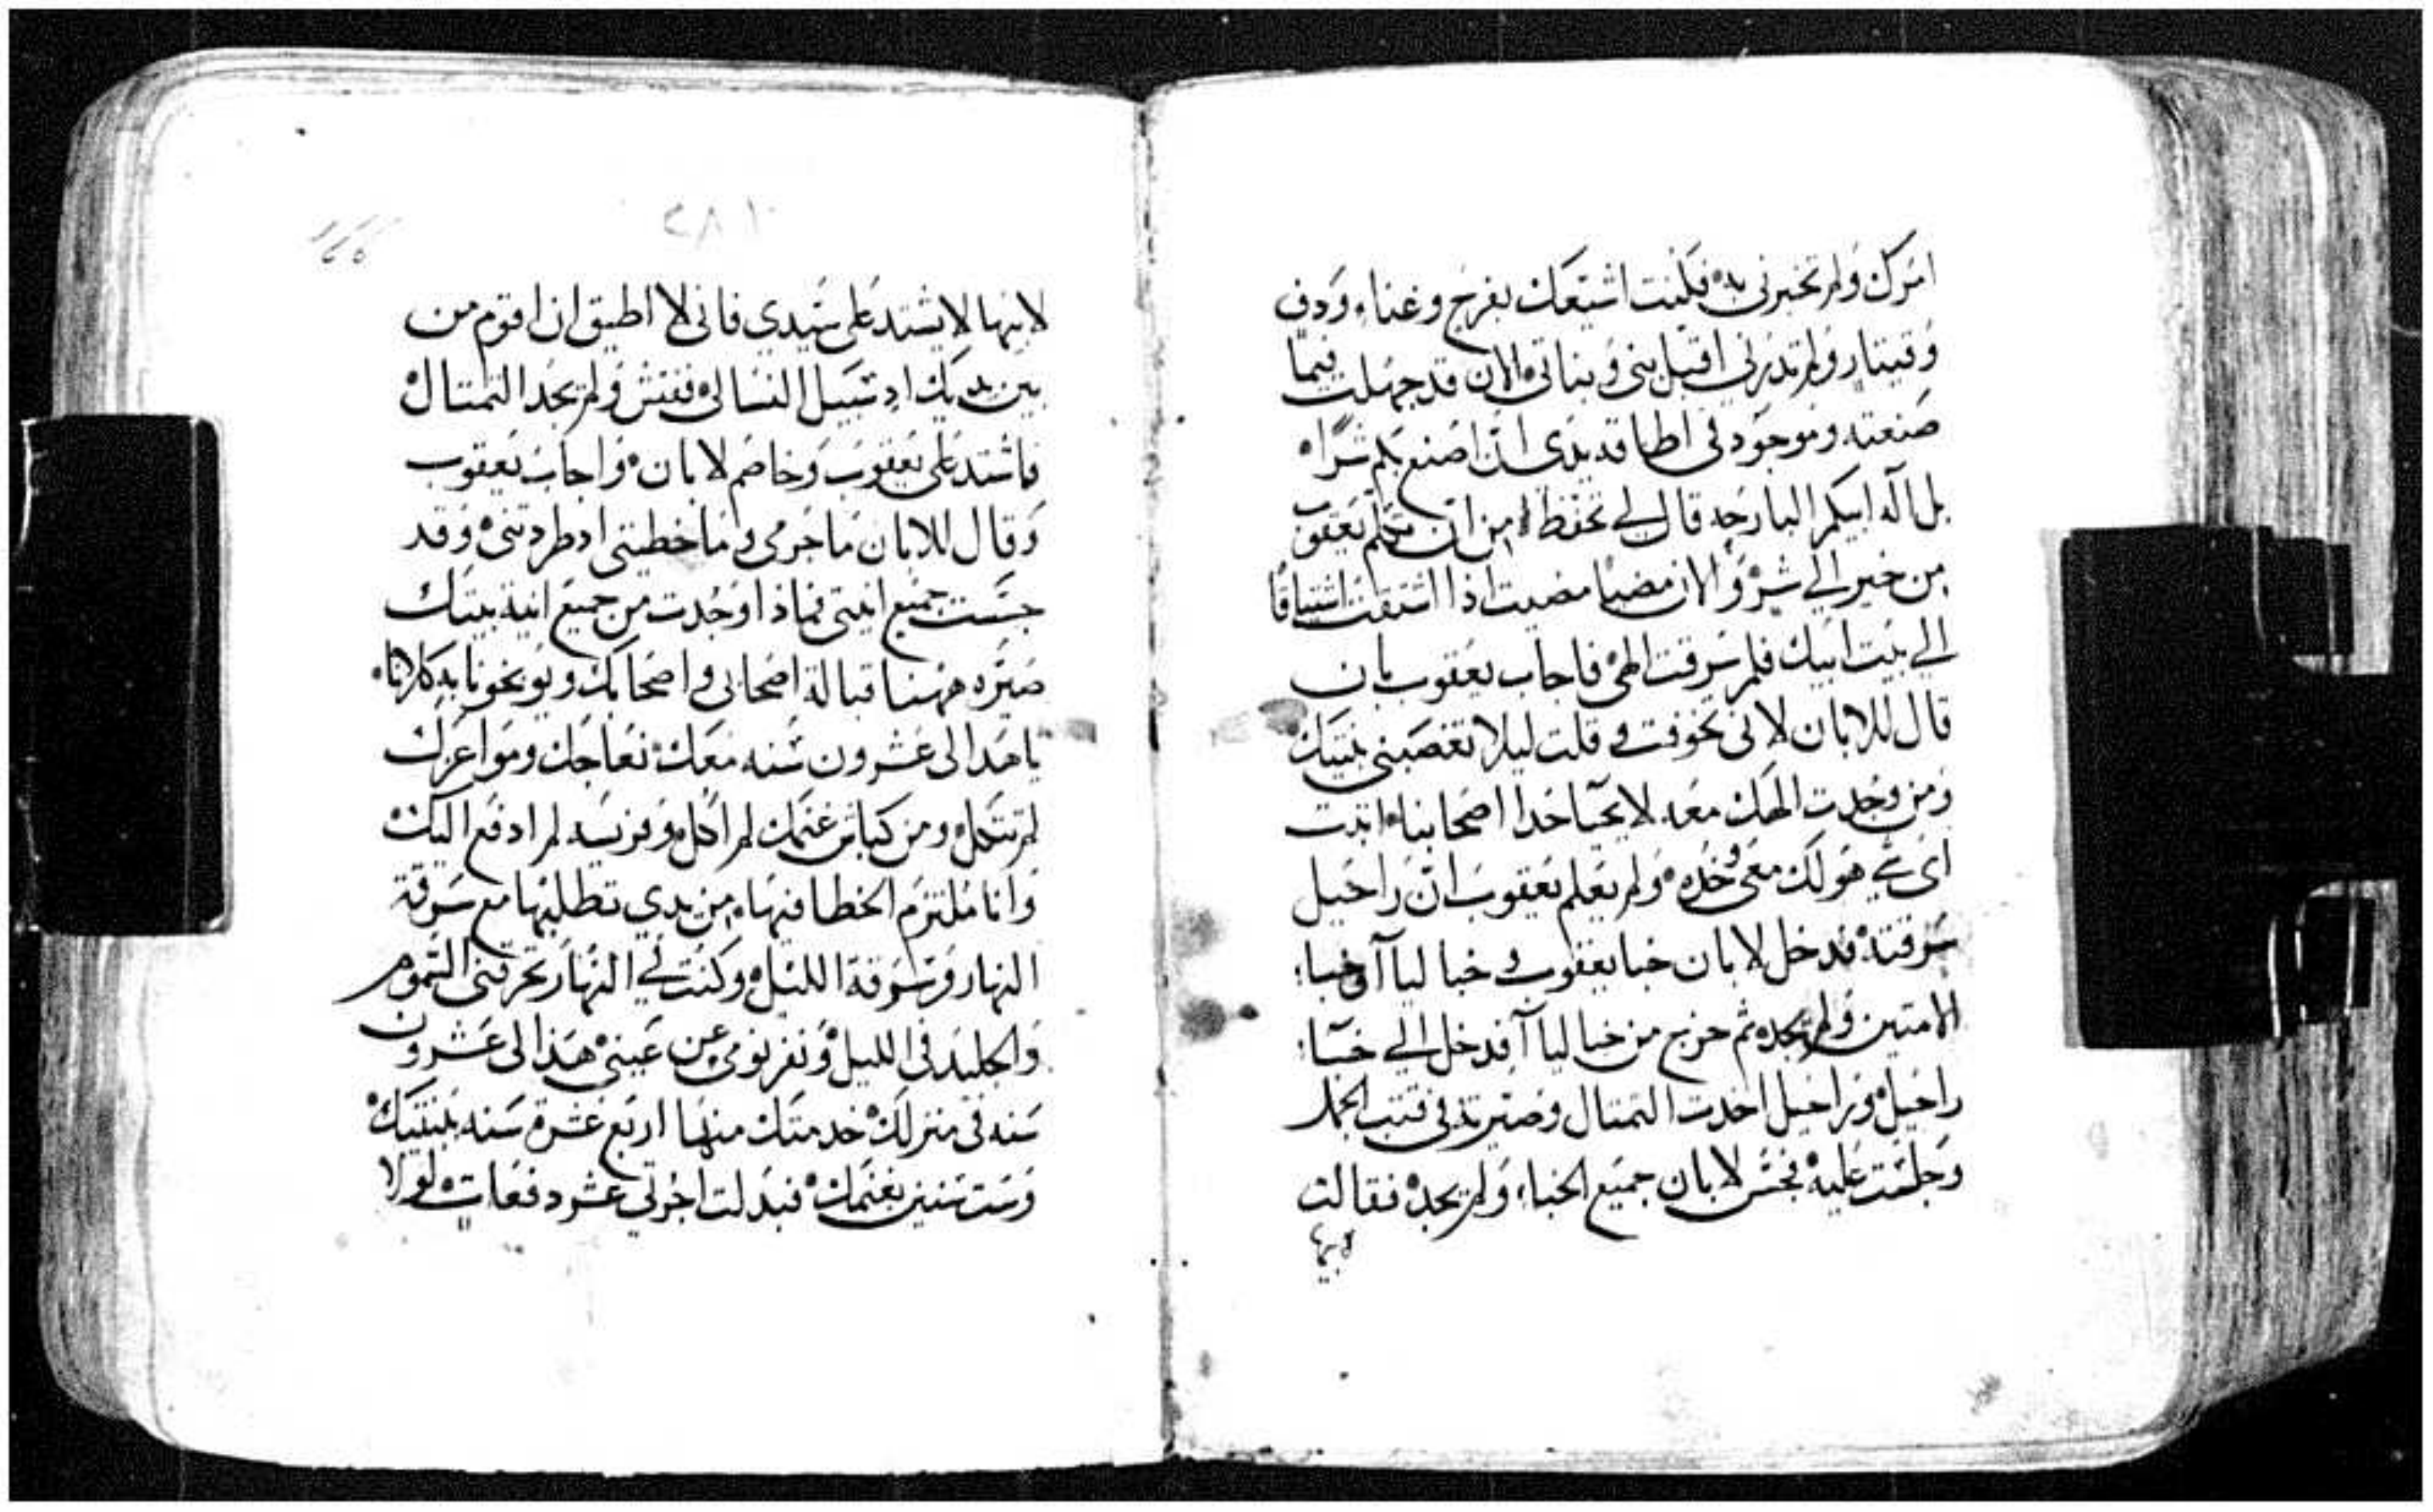 امرك ولم تخبرني به فكنت اشيعك بفرح وغناء ودف
وقيتار ولم تدرني اقبل بني وبناتي الان قد جهلت فيما
صنعته وموجود في اطاقه يدي ان اصنع بكم شراه
بل اله ابيكم البارحه قال لي تحفظ من ان تكلم يعقوب
من خير الي شر والان مضيا مضيت اذا اشتقت اشتياقا
الي بيت ابيك فلم سرقت الهي فاجاب يعقوب بان
قال للابان لاني تخوفت وقلت ليلا تغصبني بنتيك
ومن وجدت الهك معه لا يحيا حدا اصحابنا اتبت
اي شي هو لك معي وخده ولم يعلم يعقوب ان راحيل
سرقته فدخل لابان خبا يعقوب و خبا ليا آ وخبا
الامتين ولم يجده ثم خرج من خبا ليا آ فدخل الي خبا
راحيل وراحيل اخدت التمتال وصيرته في قتب الجمل
وجلست عليه فجس لابان جميع الخباء ولم يجد فقالت
لابيها
٢٨١
لابيها لا يشتد علي سيدي فاني لا اطيق ان اقوم من
بين يديك اد سبيل النسا لي ففتش ولم يجد التمتال
فاشتد علي يعقوب وخاصم لابان واجاب يعقوب
وقال للابان ما جرمي وما خطيتي اد طردتني وقد
جسست جميع انيتي فماذا وجدت من جميع انية بيتك
صيره ههنا قبالة اصحابي واصحابك ويوبخونا به كلانا
يا هدا لي عشرون سنه معك نعاجك ومواعزك
لم تتكل ومن كباش غنمك لم اكل وفريسه لم ادفع اليك
وانا ملتزم الخطا فيها من يدي تطلبها مع سرقة
النهار وسرقة الليل وكنت في النهار تحرقني السموم
والجليد في الليل ونفر نومي عن عيني هذا لي عشرون
سنه في منزلك خدمتك منها اربع عشرة سنه ببنتيك
وست سنين بغنمك فبدلت اجرتي عشر دفعات لولا